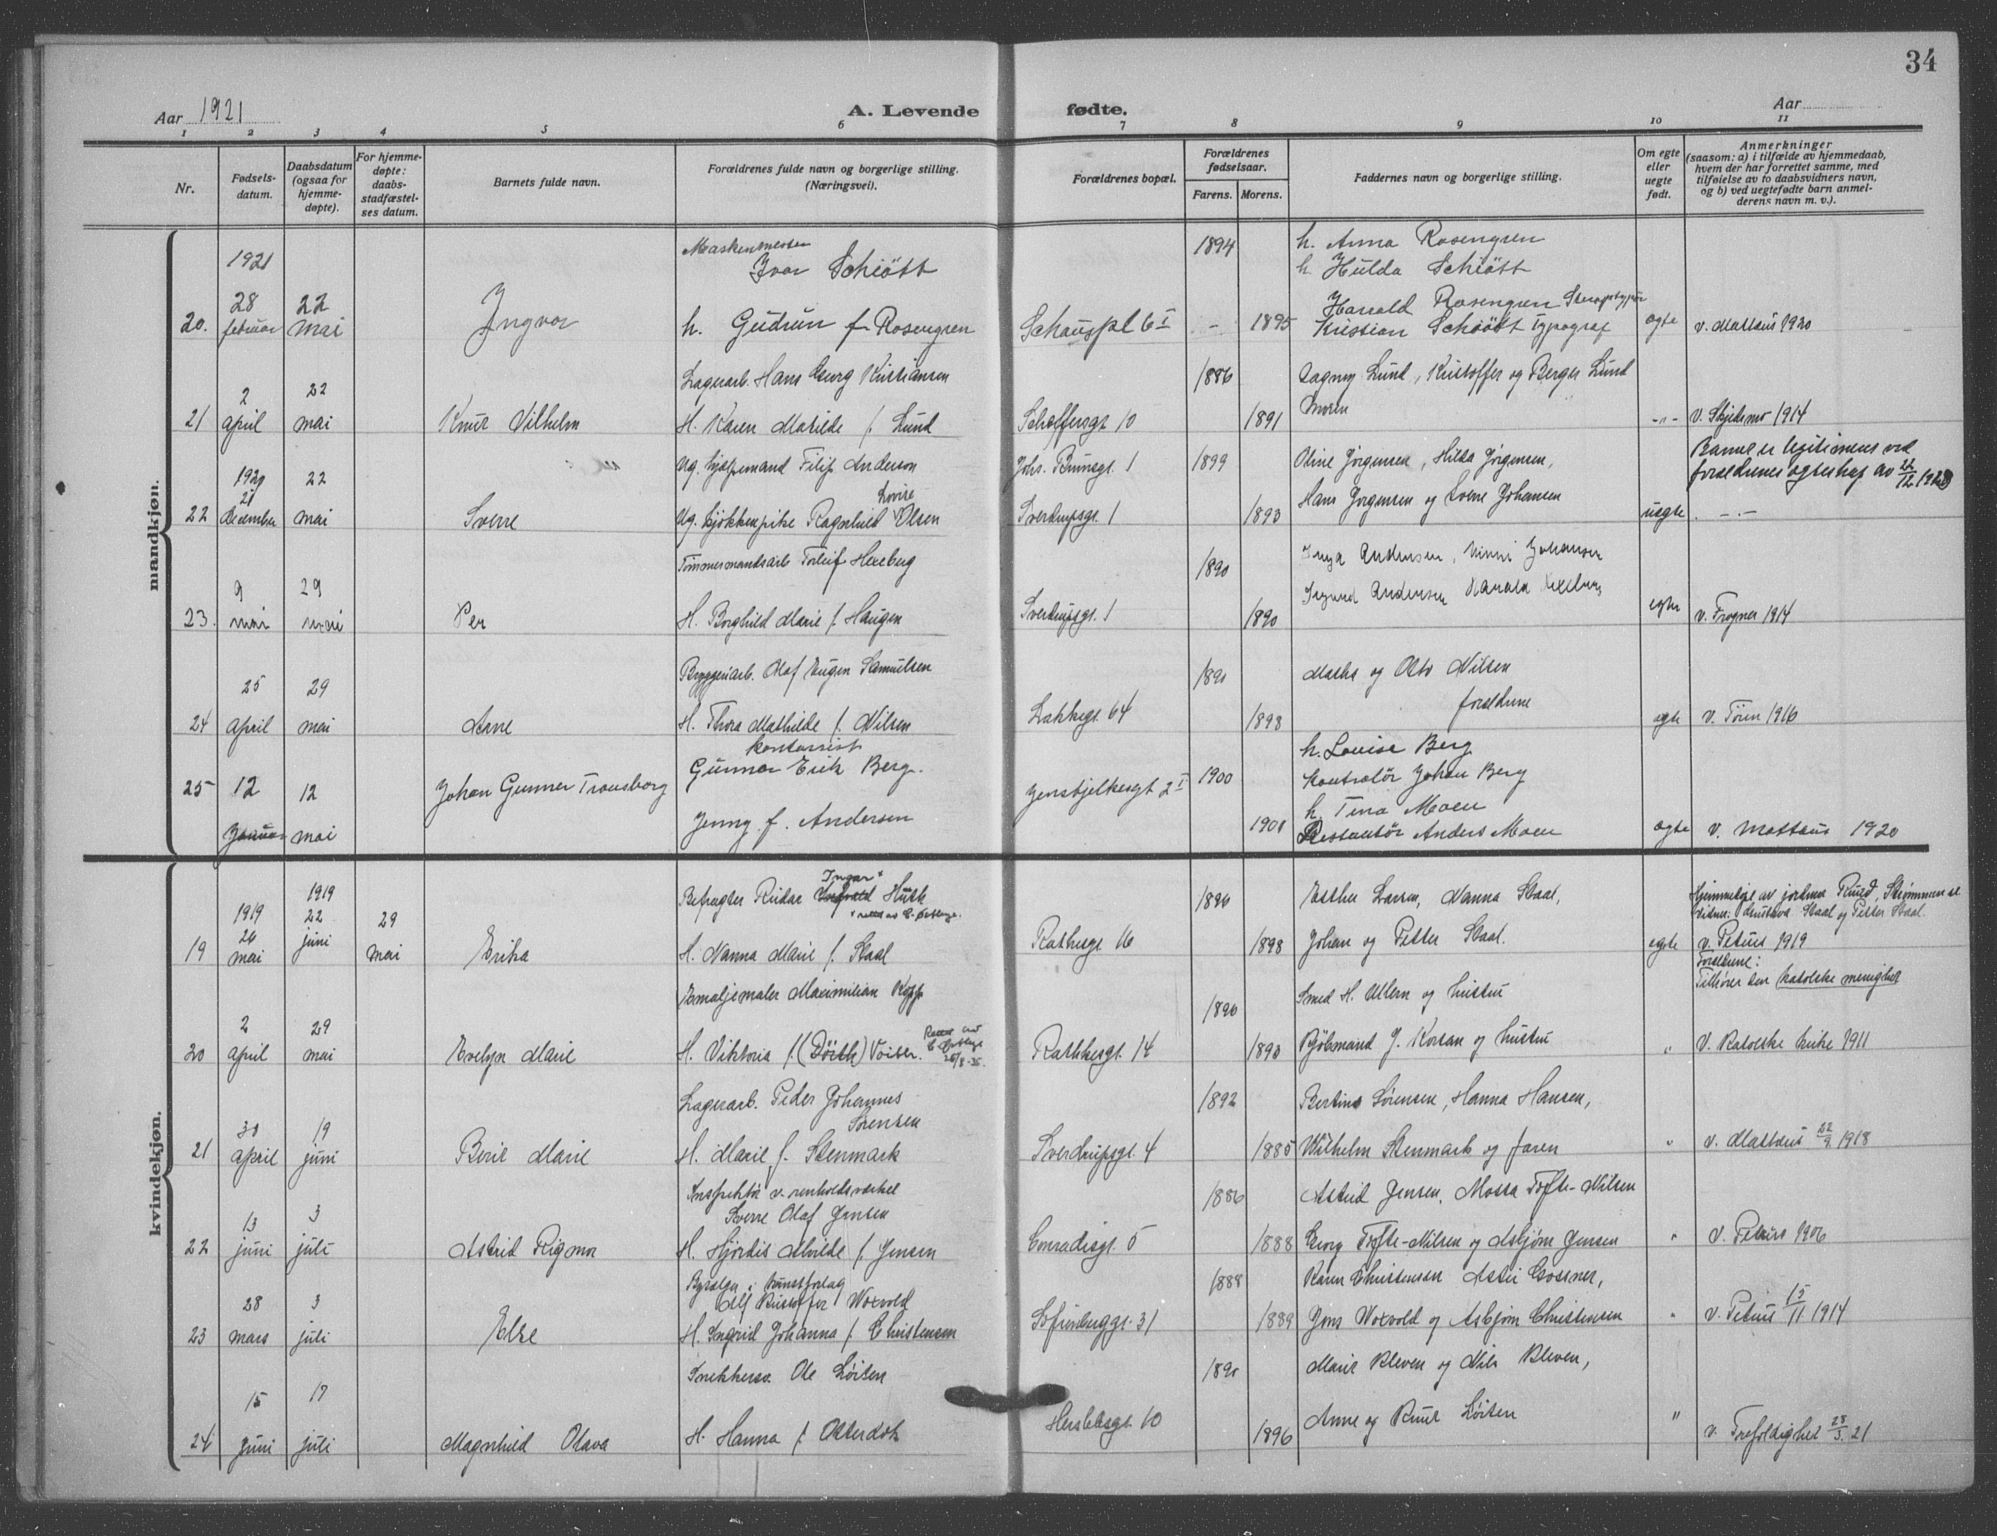 34
Aar 1921
A. Levende fødte.
Aar
1 2 3 4 5 6 7 8 9 10 11
Nr.
Fødsels-
datum.
Daabsdatum
(ogsaa for
hjemme-
døpte).
For hjemme-
døpte:
daabs-
stadfæstel-
ses datum.
Barnets fulde navn.
Forældrenes fulde navn og borgerlige stilling.
(Næringsvei).
Forældrenes bopæl.
Forældrenes
fødselsaar.
Farens.
Morens.
Faddernes navn og borgerlige stilling.
Om egte
eller
uegte
født.
Anmerkninger
(saasom: a) i tilfælde av hjemmedaab,
hvem der har forrettet samme, med
tilføielse av to daabsvidners navn,
og b) ved uegtefødte barn anmel-
derens navn m. v.).
mandkjøn.
1921
Maskinmester
Ivar Schiött
1894
h. Anna Rosengren
h. Hulda Schiött
28
22
Harald Rosengren
20. februar mai Ingvar h. Gudrun f. Rosengren Schouspl 6 I - 1895 Kristian Schiött Typograf egte v. Mattæus 1920
Lagerarb. Hans Georg Kristiansen
1886
Dagny Lund, Kristoffer og Berger Lund
2
22
moren
21 april mai Knut Vilhelm H. Karen Matilde f. Lund Schæffersgt 10 1891 -"- v. Skjedsmo 1914
1920
22
Ug. hjelpemand Filip Anderson
Johs. Brunsgt. 1
1899
Oline Jørgensen, Hilda Jørgensen,
Barnet er legitimert ved
foreldrenes egteskap av 22/12 1923
21
Lovise
Hans Jørgensen og Sverre Johansen
22 december mai Sverre Ug. kjøkkenpike Ragnhild Olsen Sverdrupsgt. 1 1893 uegte
Tømmermandsarb Torleif Hexeberg
1890
Inga Andersen, Johansen
9
29
Andersen
23. mai mai Per H. Borghild Marie f. Haugen Sverdrupsgt. 1 1890 egte v. Frogner 1914
Bryggeriarb. Olaf Eugen Samuelsen
1891
og Otto Nilsen
25
29
foreldrene
24 april mai Arne H. Thora Mathilde f. Nilsen Lakkegt. 64 1898 egte v. Tøien 1916
kontorist
h. Louise Berg
25 12 12 Johan Gunnar Tronsborg Gunnar Erik Berg. Jensbjelkesgt 2 I 1900 Kontrolør Johan Berg
h. Tina Moen
Januar mai Jenny f. Andersen 1901 Anders Moen egte v. Mattæus 1920
kvindekjøn.
1919
1919
29
Ingar
Befragter Reidar Hütt
1896
Esther Larsen, Nanna Staal,
Hjemmedøpt av jordmor Ruud, Strømmen st
Vidner: Staal og Petter Staal.
26
22
19 mai juni mai Erika H. Nanna Marie f. Staal Rathkesgt 16 1898 Johan og Petter Staal. egte v. Petrus 1919
Foreldrene:
Tilhører den katolske menighet
Emaljemaler Maximilian Kopp
1890
Smed H. Ullern og hustru
2
29
20 april mai Evelyn Marie H. Viktoria f. (Dörth) Voiter. Rathkesgt. 14 1890 Kjøbmand J. Korsan og hustru " v. Katolske kirke 1911
Lagerarb. Peder Johannes
Sørensen
1892
Sørensen, Hanna Hansen,
30
19
21 april juni Berit Marie H. Marie f. Stenmark Sverdrupsgt. 4 1885 Wilhelm Stenmark og faren " v. Mattæus 22/9 1918
Inspektør v. renholdsverket
Sverre Olaf Jensen
1886
Astrid Jensen, Mossa Tofte-Nilsen
13
3
22 juni juli Astrid Rigmor H. Hjørdis Alvilde f. Jensen Conradisgt. 5 1888 Georg Tofte-Nilsen og Asbjørn Jensen " v. Petrus 1906
Byselger i kunstforlag
Alf Kristoffer Woxvold
1888
Karen Christensen
28
3
23 mars juli Else H. Ingrid Johanna f. Christensen Sofienberggt. 31 1889 Jens Woxvold og Asbjørn Christensen " v. Petrus 15/11 1914
Snekkersv. Ole Løiten
1891
Marie Bleven og Nils Bleven,
15
17
Anne og Knut Løiten
24 juni juli Magnhild Olava H. Hanna f. Otterdok Herslebsgt. 10 1896 " v. Trefoldighet 28/3 21